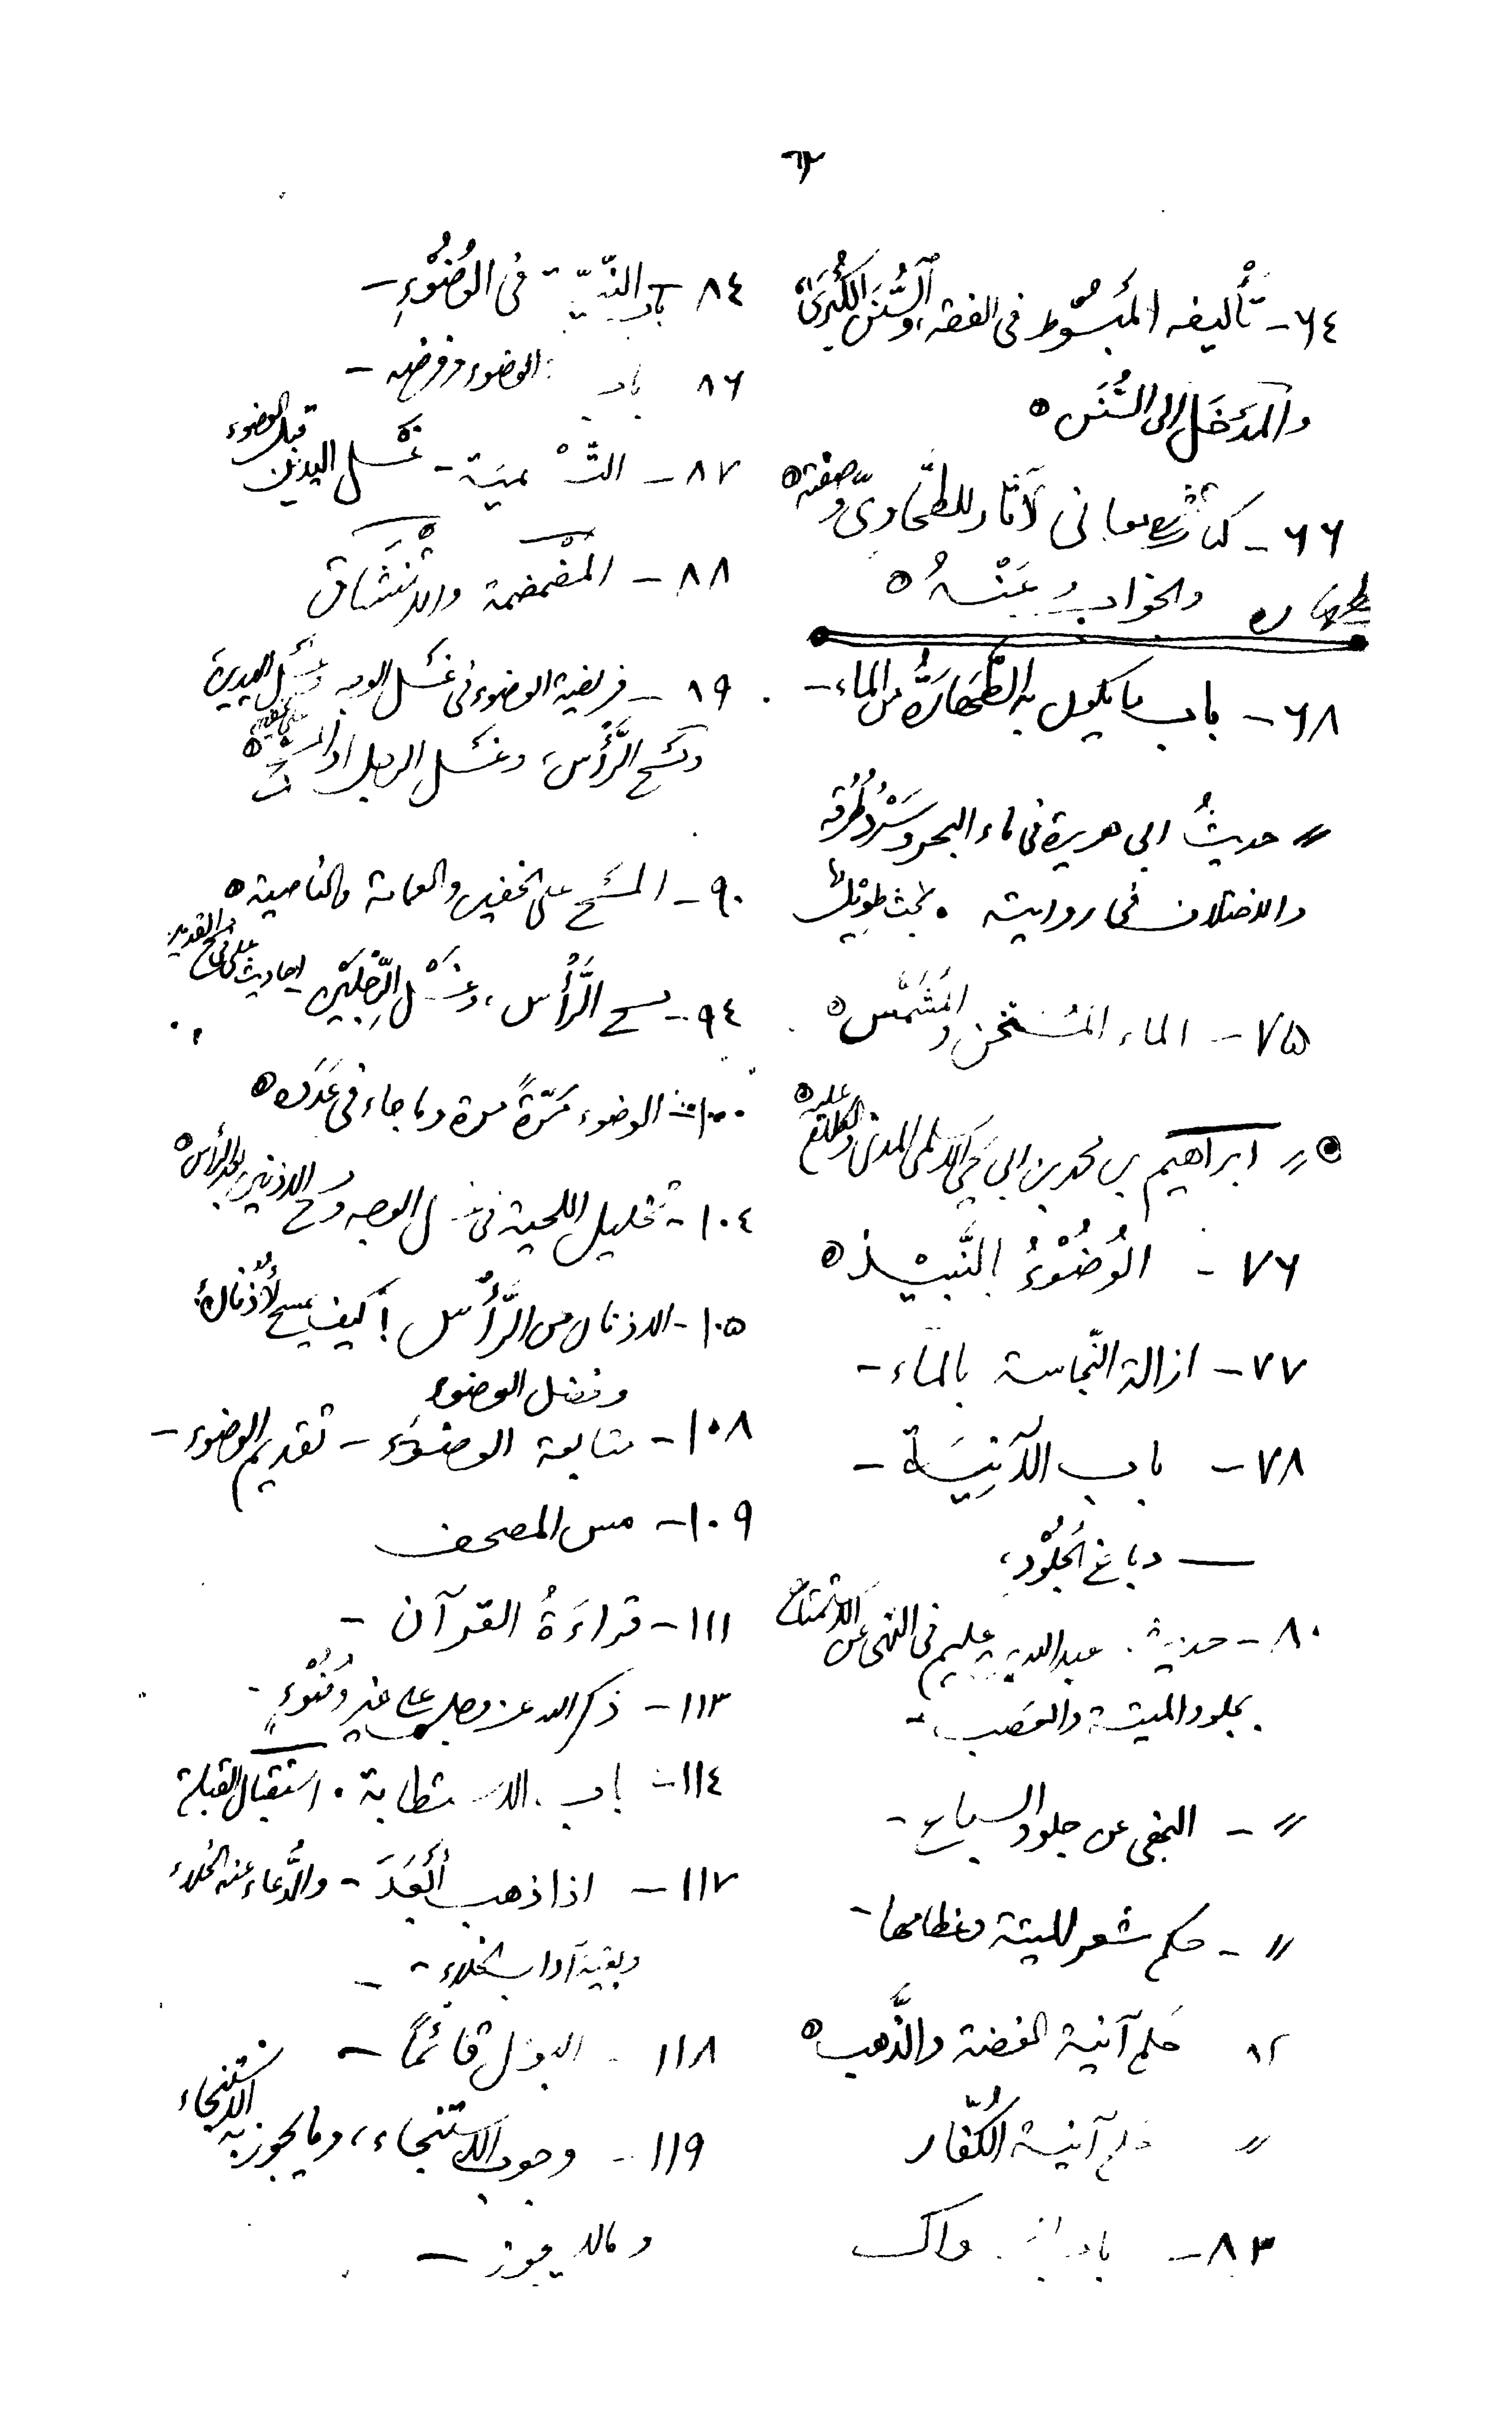 ٦٤- تأليفه المَبسُوط فى الفقه، والسُّنَن الكُبرَىٰ
والمَدخَل الى السُّنَن ه
٦٦- كتاب معانى الآثار للطَّحاوىّ وصفته ه
والجواب عَنْهُ ه
طهارة
٦٨- باب ما يكون به الطَّهَارَةُ من الماء-
〃 حديثُ ابى هريرة فى ماء البحر وسَرْدُ طُرُقه
والاختلاف فى روايته ه بحث طويل
٧٥- الماء المُسَخَّن والمُشَمَّس ه
〃 ابراهيم بن محمد بن ابى يحيى الاسلمى المدنى والكلام عليه ه
٧٦- الوُضُوْءُ بالنَّبِيْذ ه
٧٧- ازالة النّجاسة بالماء-
٧٨- باب الآنِيَة-
— دباغ الجُلُوْد،
٨٠- حديث عبدالله بن عليم فى النهى عن الاستمتاع
بجلود الميتة والعَصَب-
〃- النهى عن جلود السباع-
〃- حكم شعر الميتة وعظامها-
٨٢ حكم آنية الفضة والذَّهب ه
〃 حكم آنية الكُفّار
٨٣- باب السواك
٨٤- باب النِّيَّة فى الوُضُوْءِ-
٨٦ باب الوضوء وفرضه-
٨٧- التَّسْمية- غَسل اليدين قبل الوضوء
٨٨- المَضْمَضة والاسْتِنْشَاق
٨٩- فريضة الوضوء فى غَسل الوجه وغَسل اليدين
ومَسح الرَّأس، وغَسل الرجل
٩٠- المَسَح على الخفين والعمامة والناصية ه
٩٤- مسح الرَّأس، وغَسْل الرِّجْلَيْن احاديث على فتح القدير
١٠٠- الوضوء مَرَّةً مرة وما جاء فى عَدَده ه
١٠٤- تخليل اللحية فى غسل الوجه ومسح الاذنين بعد الرأس ه
١٠٥- الاذنان من الرَّأس! كيف يمسح الأُذنان؟
١٠٨- متابعة الوضوء- تقديم الوضوء- وفضل الوضوء
١٠٩- مس المصحف
١١١- قراءَةُ القرآن-
١١٣- ذكر الله عز وجل على غير وُضُوْءٍ-
١١٤- باب الاستطابة. استقبال القبلة
١١٧- اذا ذهب أَبْعَدَ- والدُّعاء عند الخلاء
وبقية آداب الخلاء-
١١٨- البول قائماً-
١١٩- وجوب الاستنجاء، وما يجوز به الاستنجاء
وما لا يجوز-